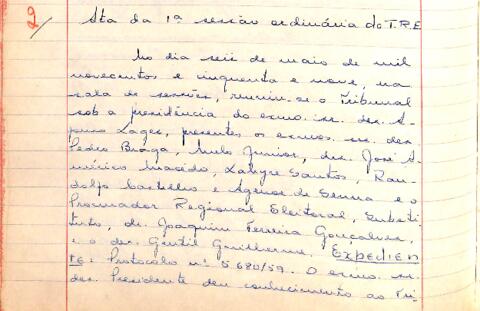 2/
Ata da 1ª sessão ordinária do T.R.E
No dia seis de maio de mil
novecentos e cinquenta e nove, na
sala de sessões, reuniu-se o Tribunal
sob a presidência do exmo. sr. des. A-
pures Lages, presentes os exmos. srs. des.
Pedro Braga, Melo Junior, drs. José A-
mérico Macêdo, Santos, Ran-
dolfo Castello e Agenor de Senna e o
Procurador Regional Eleitoral, Substi-
tuto, dr. Joaquim Ferreira Gonçalves,
e o des. Gentil Guilherme. EXPEDIEN
TE: Protocolo nº 5.680/59. O exmo. sr.
des. Presidente deu conhecimento ao Tri-